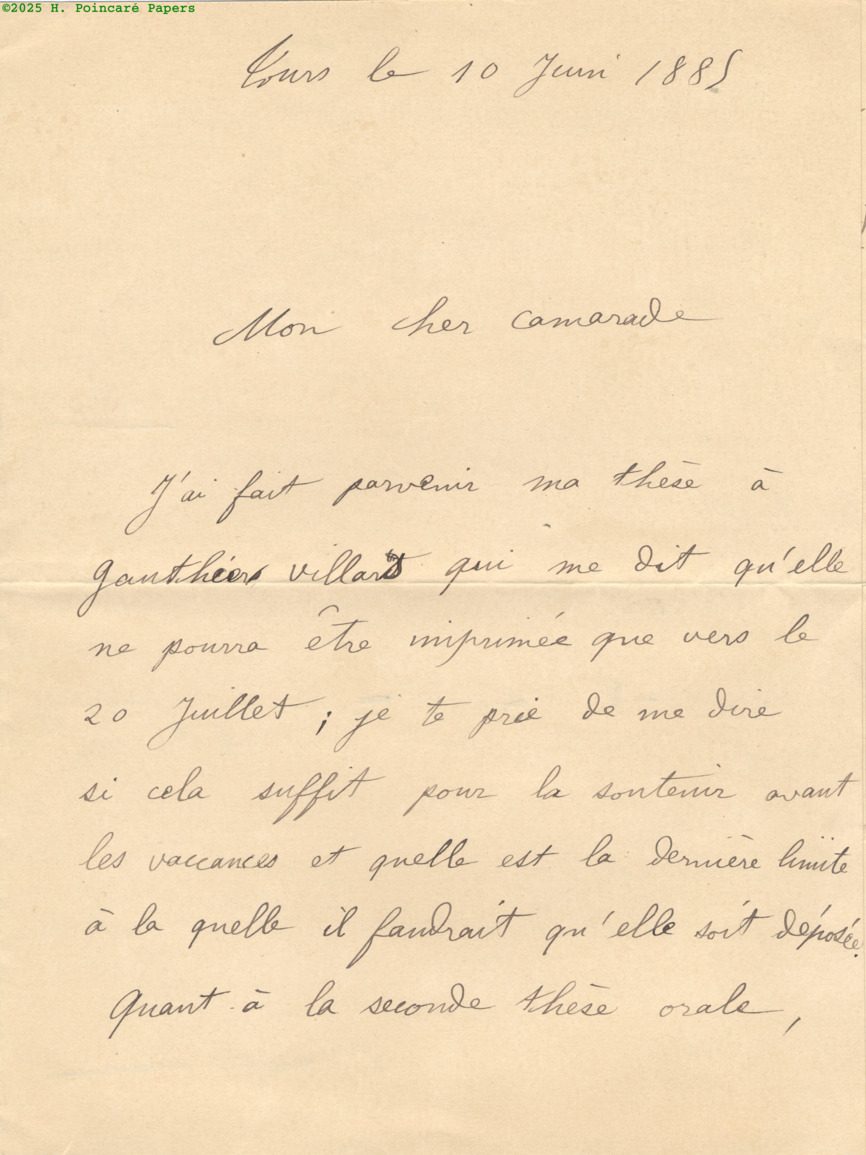 ©2025 H. Poincaré Papers
Tours le 10 Juin 1885
Mon cher camarade
J'ai fait parvenir ma thèse à
Gauthier villars qui me dit qu'elle
ne pourra être imprimée que vers le
20 Juillet ; je te prie de me dire
si cela suffit pour la soutenir avant
les vaccances et quelle est la dernière limite
à la quelle il faudrait qu'elle soit déposée.
Quant à la seconde thèse orale,